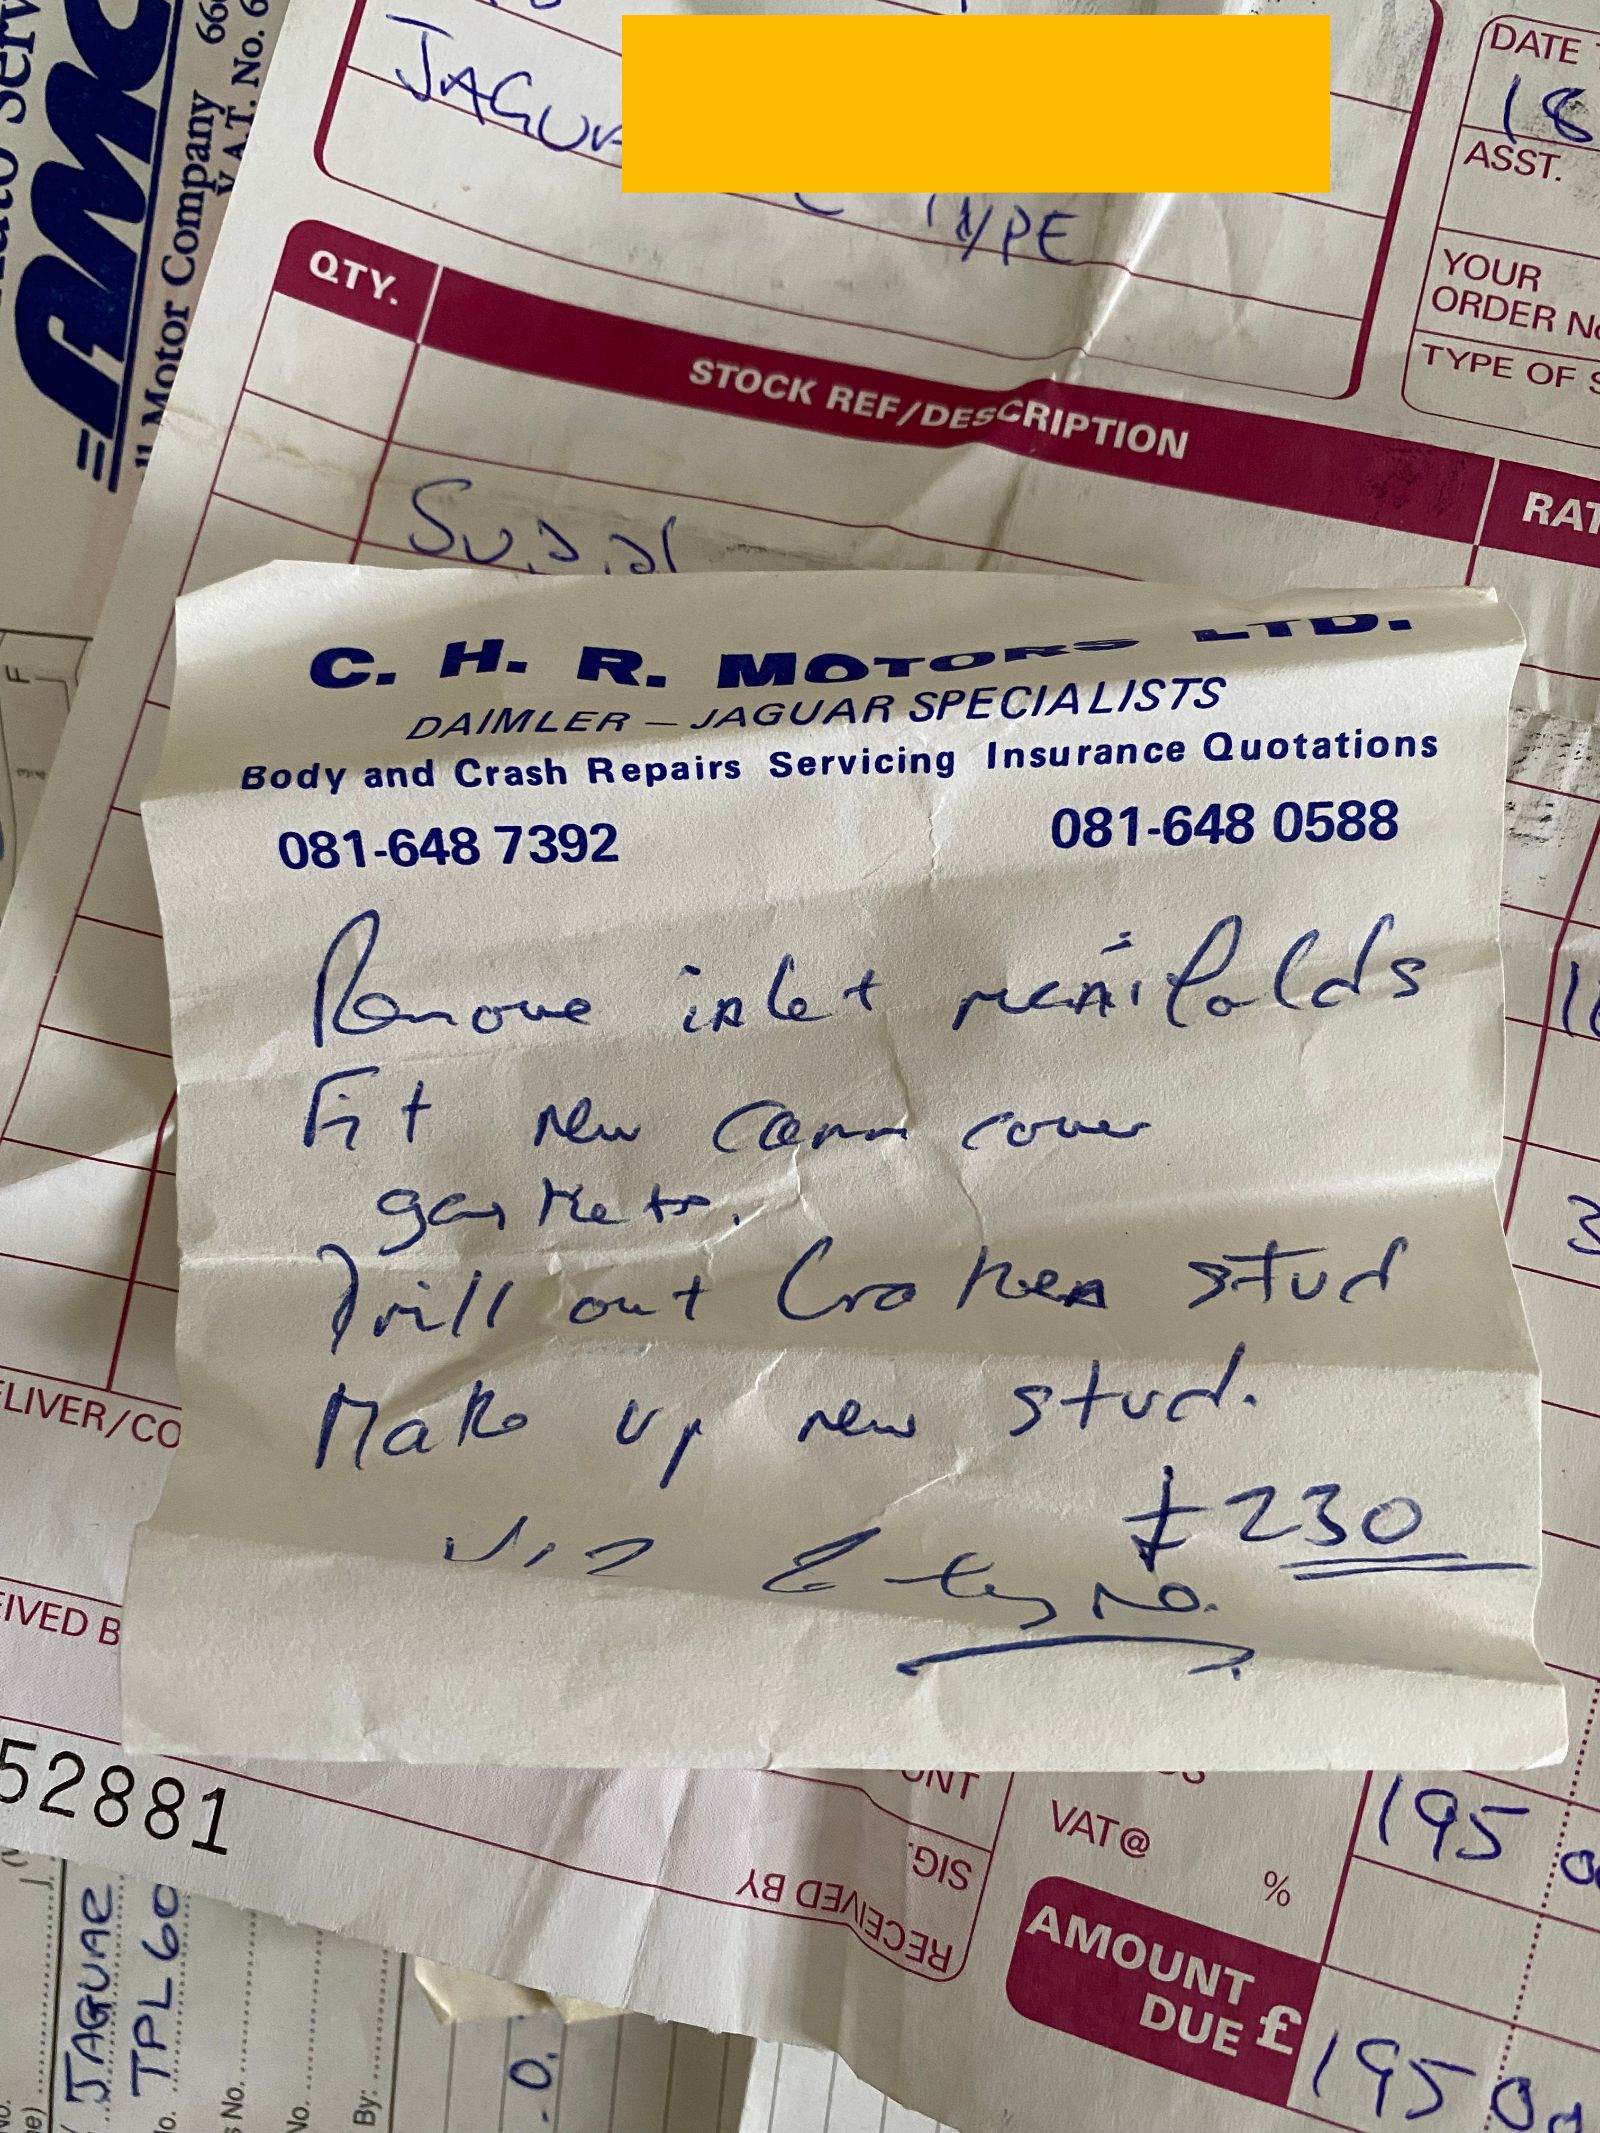 Auto Serv
AMC
ll Motor Company
V.A.T. No. 6
JAGUA
TYPE
DATE
18
ASST.
YOUR
ORDER No
TYPE OF S
QTY.
STOCK REF/DESCRIPTION
RAT
C. H. R. MOTORS LTD.
DAIMLER – JAGUAR SPECIALISTS
Body and Crash Repairs Servicing Insurance Quotations
081-648 7392 081-648 0588
Remove inlet manifolds
Fit new camm cover
gaskets.
Drill out broken stud
Make up new stud.
£230
No.
ELIVER/CO
EIVED B
52881
UNT
SIG.
RECEIVED BY
VAT@ %
195 00
AMOUNT
DUE £
195 00
JAGUAR
TPL 60
s No.
No.
By: